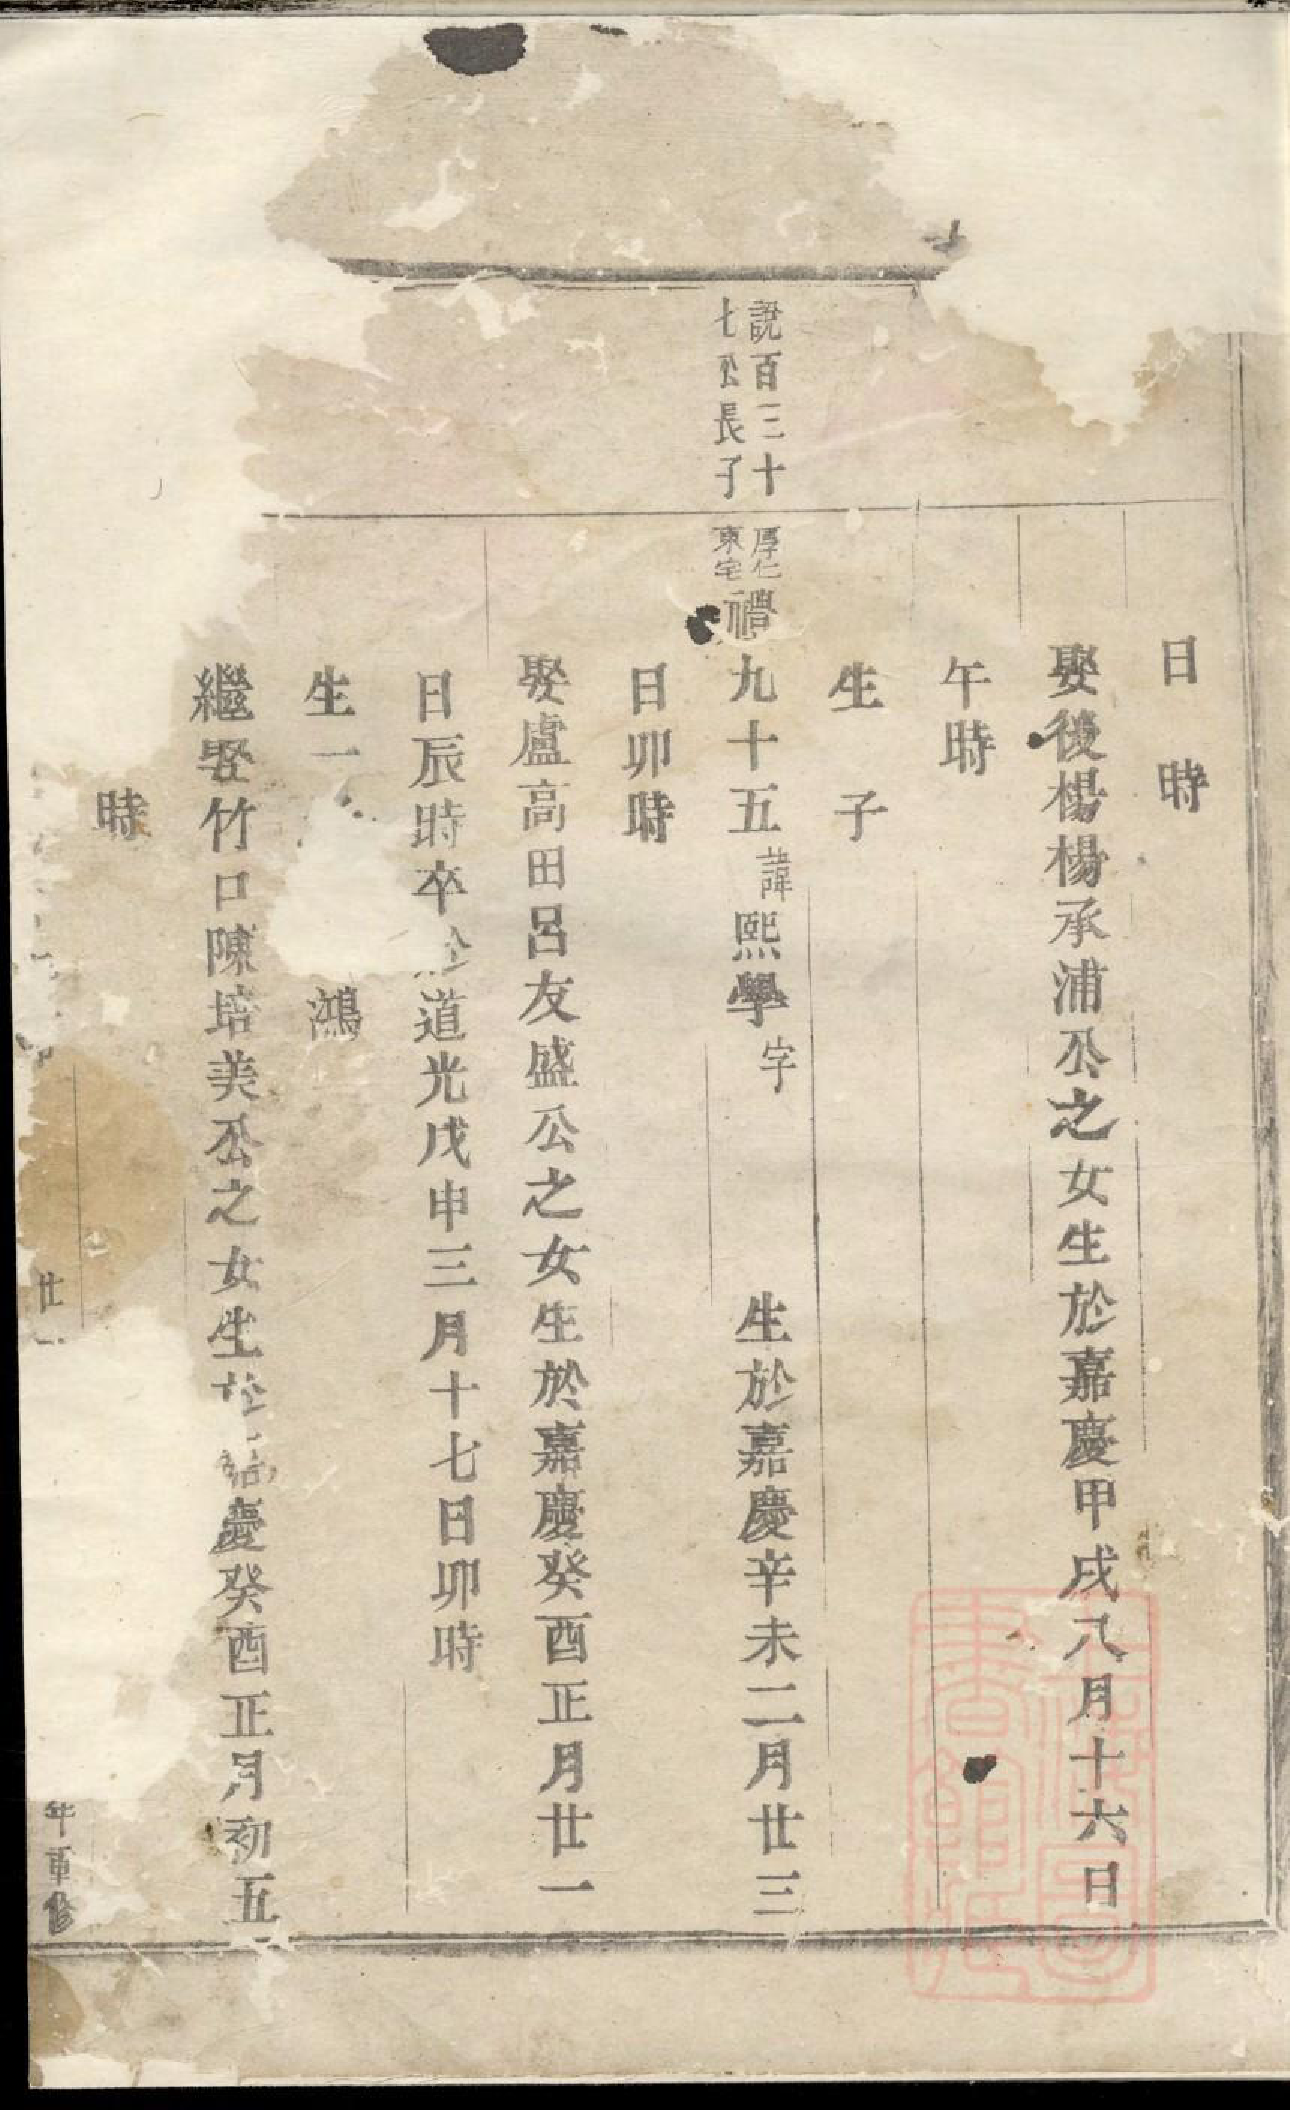 日　時
娶後楊楊承浦公之女生於嘉慶甲戌八月十六日
午時
生　子
說百三十
七公長子
厚仁
東宅
禮九十五諱熙學字　生於嘉慶辛未二月廿三
日卯時
娶盧高田呂友盛公之女生於嘉慶癸酉正月廿一
日辰時卒於道光戊申三月十七日卯時
生一　鴻
繼娶竹口陳培美公之女生於嘉慶癸酉正月初五
時
廿一
年重修
上海圖
書館藏